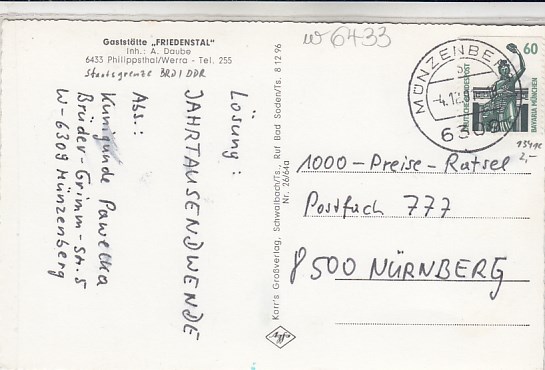 Gaststätte „FRIEDENSTAL"
Inh.: A. Daube
6433 Philippsthal/Werra - Tel. 255
Staatsgrenze BRD/DDR
Lösung:
JAHRTAUSENDWENDE
Abs.:
Kunigunde Pawelka
Brüder-Grimm-Str. 5
W-6309 Münzenberg
Karr's Großverlag, Schwalbach/Ts., Ruf Bad Soden/Ts. 8 12 96
Nr. 26/64a
Agfa
w 6433
MÜNZENBERG
-4.12.
6309
60
DEUTSCHE BUNDESPOST
BAVARIA MÜNCHEN
2,-
1000-Preise-Rätsel
Postfach 777
8500 NÜRNBERG